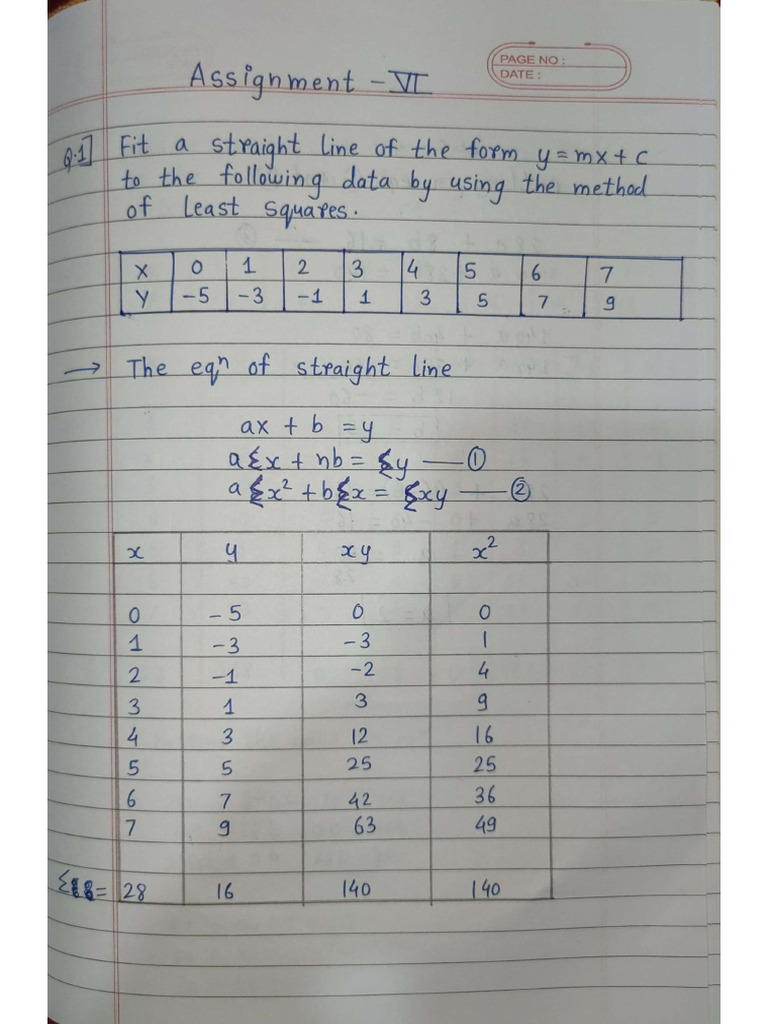 PAGE NO :
DATE :
Assignment - VI
Q.1] Fit a straight line of the form y = mx + c
to the following data by using the method
of least squares.
X 0 1 2 3 4 5 6 7
Y -5 -3 -1 1 3 5 7 9
→ The eqⁿ of straight line
ax + b = y
aΣx + nb = Σy — ①
aΣx² + bΣx = Σxy — ②
x y xy x²
0 -5 0 0
1 -3 -3 1
2 -1 -2 4
3 1 3 9
4 3 12 16
5 5 25 25
6 7 42 36
7 9 63 49
Σ = 28 16 140 140